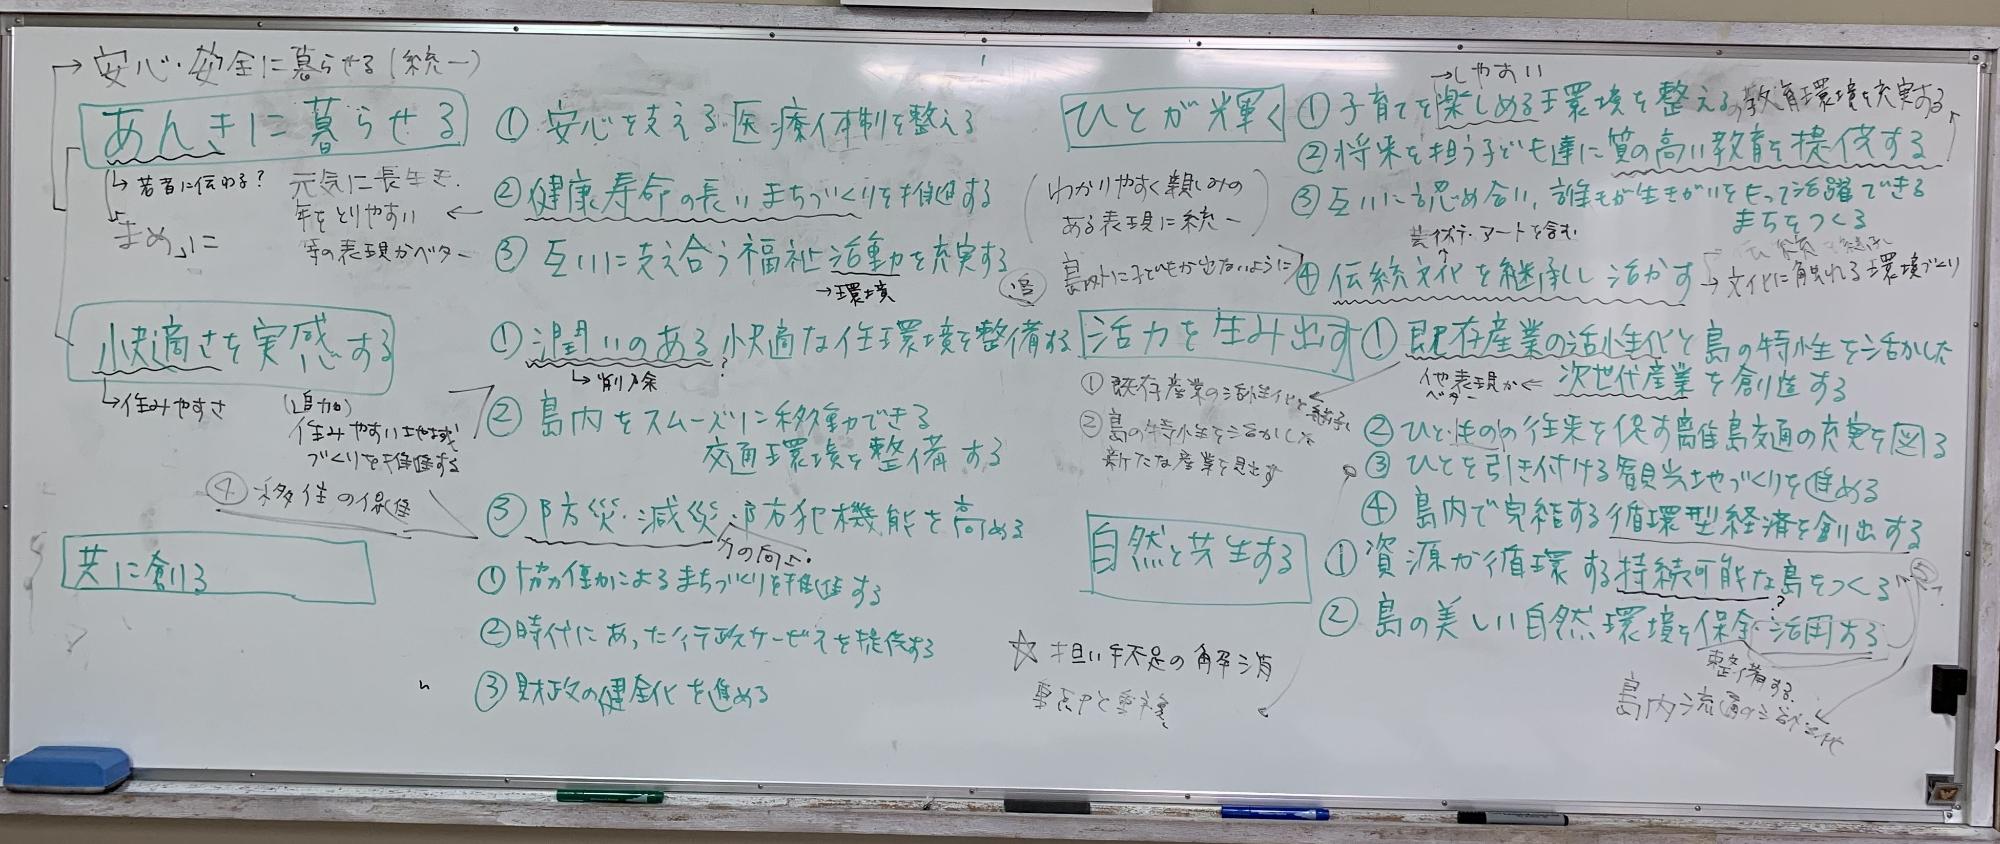 安心・安全に暮らせる(統一)
あんきに暮らせる
→若者に伝わる?
「まめ」に
元気に長生き、
年をとりやすい
等の表現がベター
①安心を支える医療体制を整える
②健康寿命の長いまちづくりを推進する
③互いに支え合う福祉活動を充実する
→環境
快適さを実感する
→住みやすさ
(追加)
住みやすい地域
づくりを推進する
④移住の促進
①潤いのある快適な住環境を整備する
→削除?
②島内をスムーズに移動できる
交通環境を整備する
③防災・減災・防犯機能を高める
力の向上
共に創る
①協力・協働によるまちづくりを推進する
②時代にあった行政サービスを提供する
③財政の健全化を進める
ひとが輝く
(わかりやすく親しみの
ある表現に統一)
島外に子どもが出ないように
→しやすい
①子育てを楽しめる環境を整える
教育環境を充実する
②将来を担う子ども達に質の高い教育を提供する
③互いに認め合い、誰もが生きがいをもって活躍できる
まちをつくる
アートを含む
④伝統文化を継承し活かす
→文化に触れる環境づくり
活力を生み出す
①既存産業の活性化と継承
②島の特性を活かした
新たな産業を見出す
①既存産業の活性化と島の特性を活かした
次世代産業を創造する
他表現が
ベター
②ひと・ものの往来を促す離島交通の充実を図る
③ひとを引き付ける観光地づくりを進める
④島内で完結する循環型経済を創出する
自然と共生する
①資源が循環する持続可能な島をつくる
②島の美しい自然環境を保全・活用する
整備する
島内流通の活性化
☆担い手不足の解消